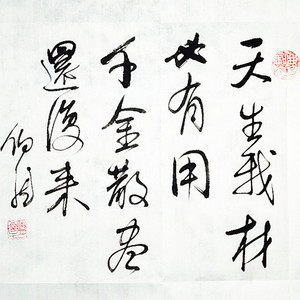 天生我材
必有用
千金散盡
還復来